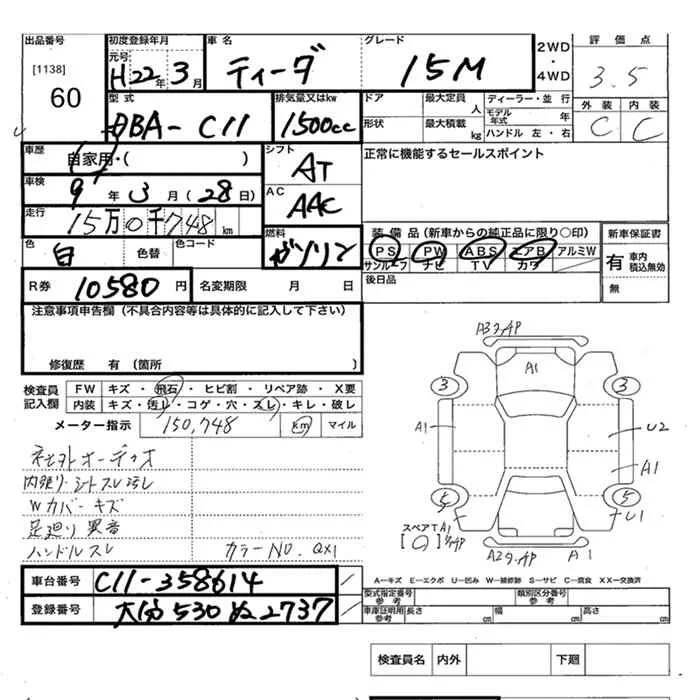 出品番号 初度登録年月 車名 グレード 2WD・4WD 評価点
[1138] 元号 H22年3月 ティーダ 15M 3.5
60 外装 内装
型式 排気量又はkw ドア 最大定員 人 ディーラー・並行
DBA-C11 1500cc 形状 最大積載 kg モデル年式 年 C C
ハンドル 左・右
車歴 自家用・( ) シフト 正常に機能するセールスポイント
AT
車検 9年3月(28日) AC
AAC
走行 15万0千748km
燃料 装備品(新車からの純正品に限り○印) 新車保証書
色 白 色替 色コード ガソリン PS PW ABS エアB アルミW 有 車内積込無効
サンルーフ ナビ TV カワ
R券 10580円 名変期限 月 日 後日品 無
注意事項申告欄(不具合内容等は具体的に記入して下さい)
修復歴 有(箇所 )
検査員記入欄 FW キズ・飛石・ヒビ割・リペア跡・X要
内装 キズ・汚レ・コゲ・穴・スレ・キレ・破レ
メーター指示 150,748 km マイル
社外オーディオ
内張り・シートスレ汚レ
Wカバーキズ
足廻り異音
ハンドルスレ カラーNO. QX1
A1
3 3
A1 U2
A1
5 5
U1
スペアT A1
A1
A-キズ E-エクボ U-凹み W-補修跡 S-サビ C-腐食 XX-交換済
車台番号 C11-358614
登録番号 大分530ぬ2737
型式指定番号 参考 類別区分番号 参考
車庫証明用 参考 長さ cm 幅 cm 高さ cm
検査員名 内外 下廻